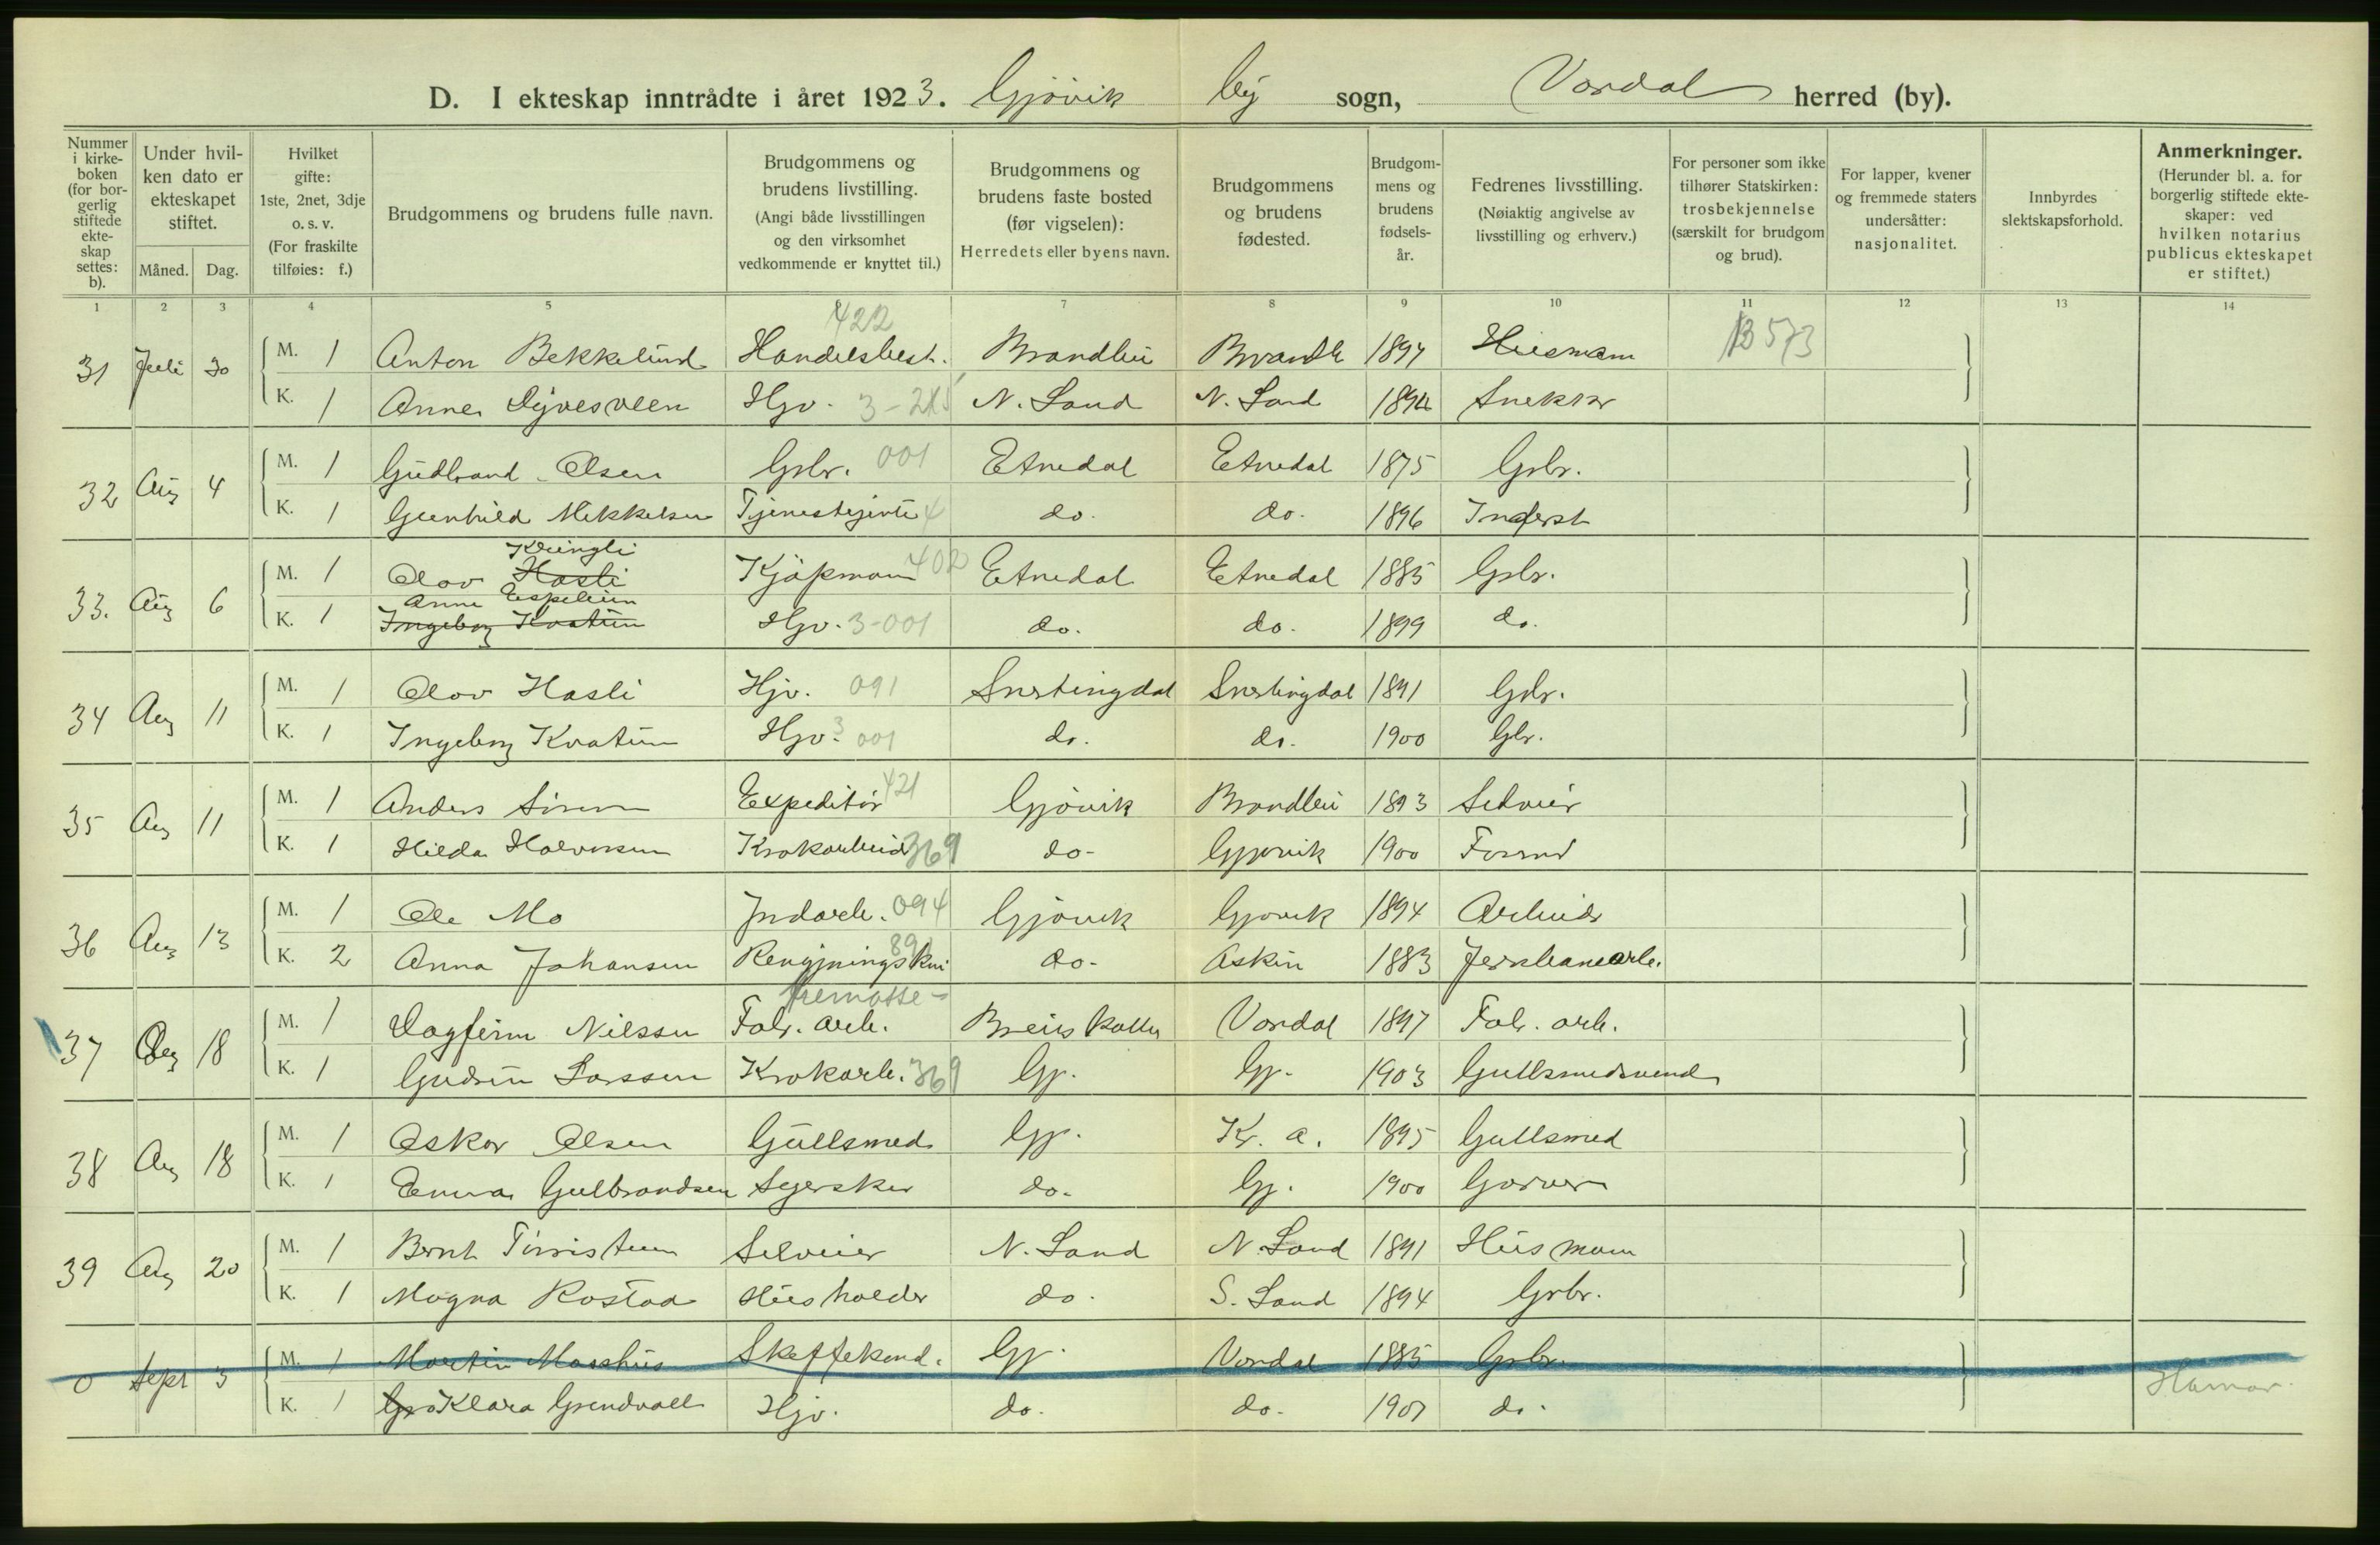 D. I ekteskap inntrådte i året 1923. Gjövik by sogn, Vardal herred (by).
Nummer i kirke-boken (for bor-gerlig stiftede ekte-skap settes: b).
Under hvil-ken dato er ekteskapet stiftet.
Måned. Dag.
Hvilket gifte: 1ste, 2net, 3dje o. s. v. (For fraskilte tilføies: f.)
Brudgommens og brudens fulle navn.
Brudgommens og brudens livstilling. (Angi både livsstillingen og den virksomhet vedkommende er knyttet til.)
Brudgommens og brudens faste bosted (før vigselen): Herredets eller byens navn.
Brudgommens og brudens fødested.
Brudgom-mens og brudens fødsels-år.
Fedrenes livsstilling. (Nøiaktig angivelse av livsstilling og erhverv.)
For personer som ikke tilhører Statskirken: trosbekjennelse (særskilt for brudgom og brud).
For lapper, kvener og fremmede staters undersåtter: nasjonalitet.
Innbyrdes slektskapsforhold.
Anmerkninger. (Herunder bl. a. for borgerlig stiftede ekte-skaper: ved hvilken notarius publicus ekteskapet er stiftet.)
1 2 3 4 5 7 8 9 10 11 12 13 14
422
31 Juli 30 M. 1 Anton Bekkelund Handelsbest. Brandbu Brandb 1897 Husmann
K. 1 Anne Dyvesveen Hjv. N. Land N. Land 1894 Snekker
32 Aug 4 M. 1 Gudbrand Olsen Gbr. 001 Etnedal Etnedal 1875 Gbr.
K. 1 Gunhild Mikkelsen Tjenestejente 4 do. do. 1896 Inderst
Kringli
33. Aug 6 M. 1 Olav Hasli Kjöpmann 402 Etnedal Etnedal 1885 Gbr.
Anne Espelien
K. 1 Ingeborg Kvatum Hjv. 3-001 do. do. 1899 do.
34 Aug 11 M. 1 Olav Hasli Hjv. 091 Snertingdal Snertingdal 1891 Gbr.
K. 1 Ingeborg Kvatum Hjv. 3 001 do. do. 1900 Gbr.
35 Aug 11 M. 1 Anders Expeditör 421 Gjövik Brandbu 1893
K. 1 Hilda Halvorsen Krokarbeid 369 do- Gjövik 1900
36 Aug 13 M. 1 Ole Mo Indarb. 094 Gjövik Gjövik 1894 Arbeider
K. 2 Anna Johansen Rengjnings kvi 89 do- Askim 1883 Jernbanearb.
37 Aug 18 M. 1 Dagfinn Nilssen Fabr. arb. Breiskallen Vardal 1897 Fabr. arb.
K. 1 Gudrun Larssen Krokarb. 369 Gj. Gj. 1903 Gullsmedsvend
38 Aug 18 M. 1 Oskar Olsen Gullsmed Gj. Kr. a. 1895 Gullsmed
K. 1 Emma Gulbrandsen Syerske do. Gj. 1900 Garver
39 Aug 20 M. 1 Bernt N. Land N. Land 1891 Husmann
K. 1 Magna Rostad Husholder do. S. Land 1894 Gbr.
0 Sept 3 M. 1 Martin Maashus Gj. Vardal 1885 Gbr.
K. 1 Klara Grindvoll Hjv. do. do. 1901 do. Hamar.